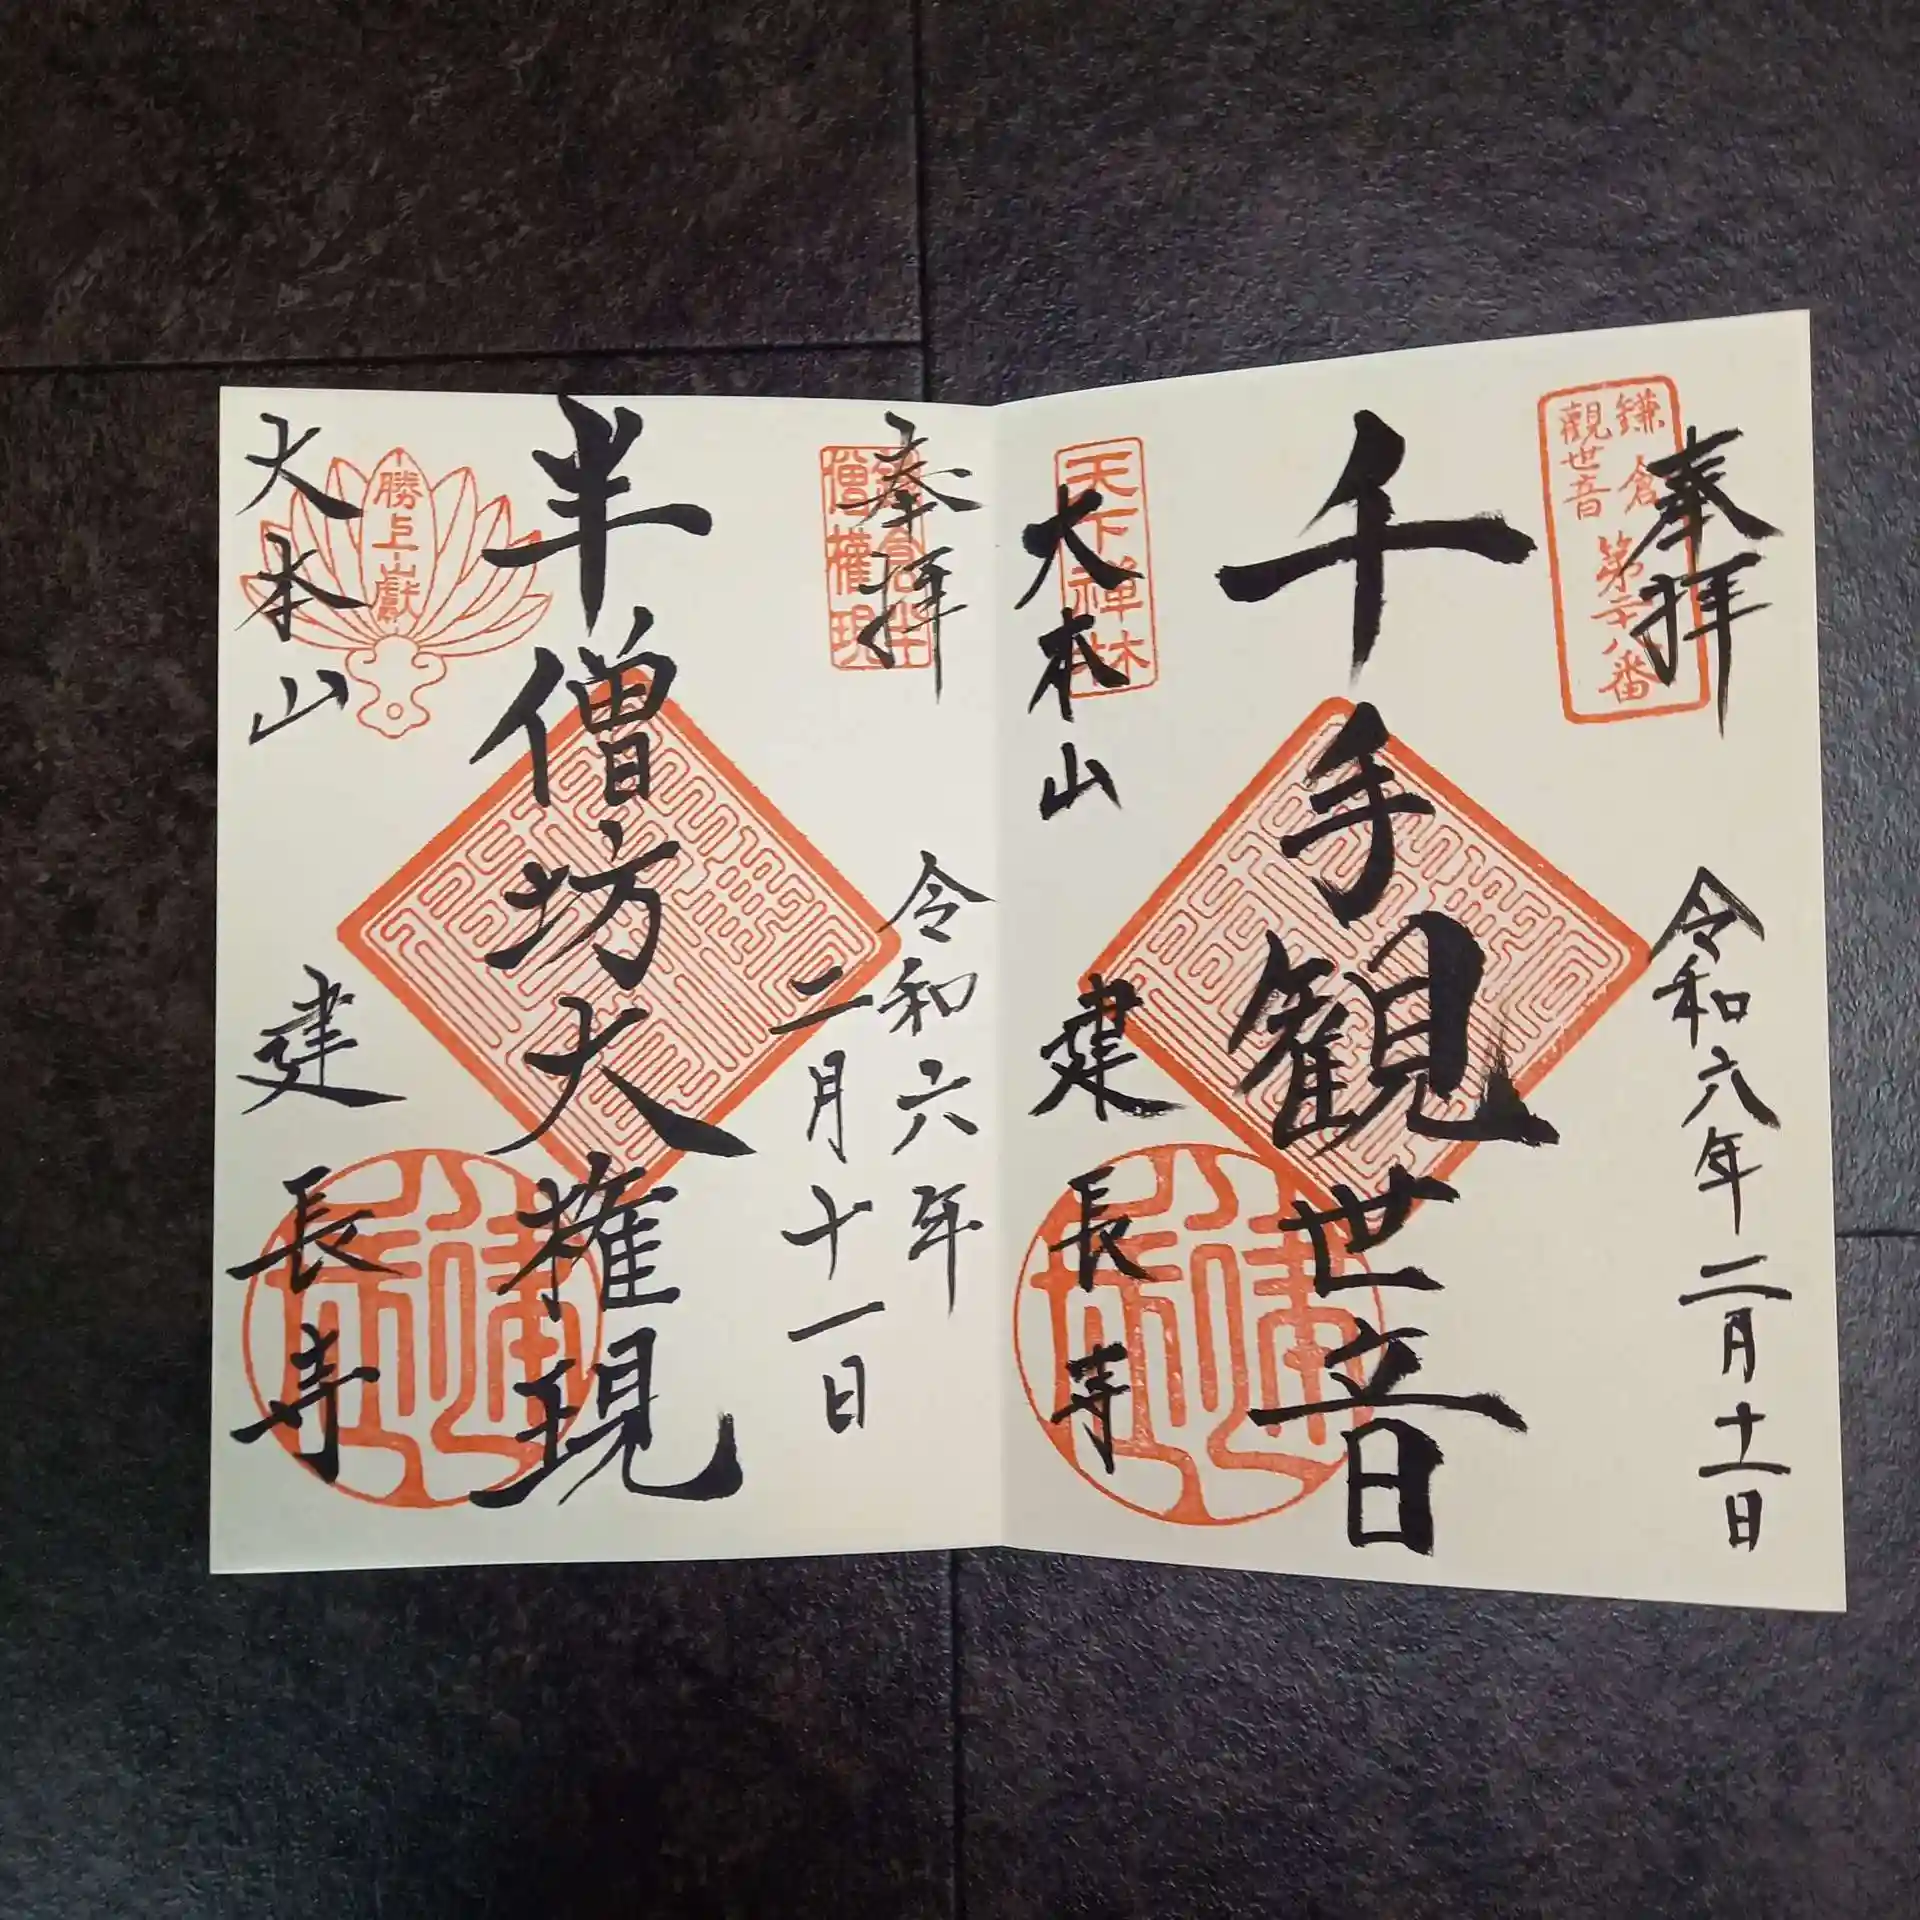 奉拝
鎌倉
観世音
第二十八番
令和六年二月十一日
千手観世音
天下禅林
大本山
建長寺
奉拝
鎌倉半
僧権現
令和六年
二月十一日
半僧坊大権現
勝上嶽
大本山
建長寺